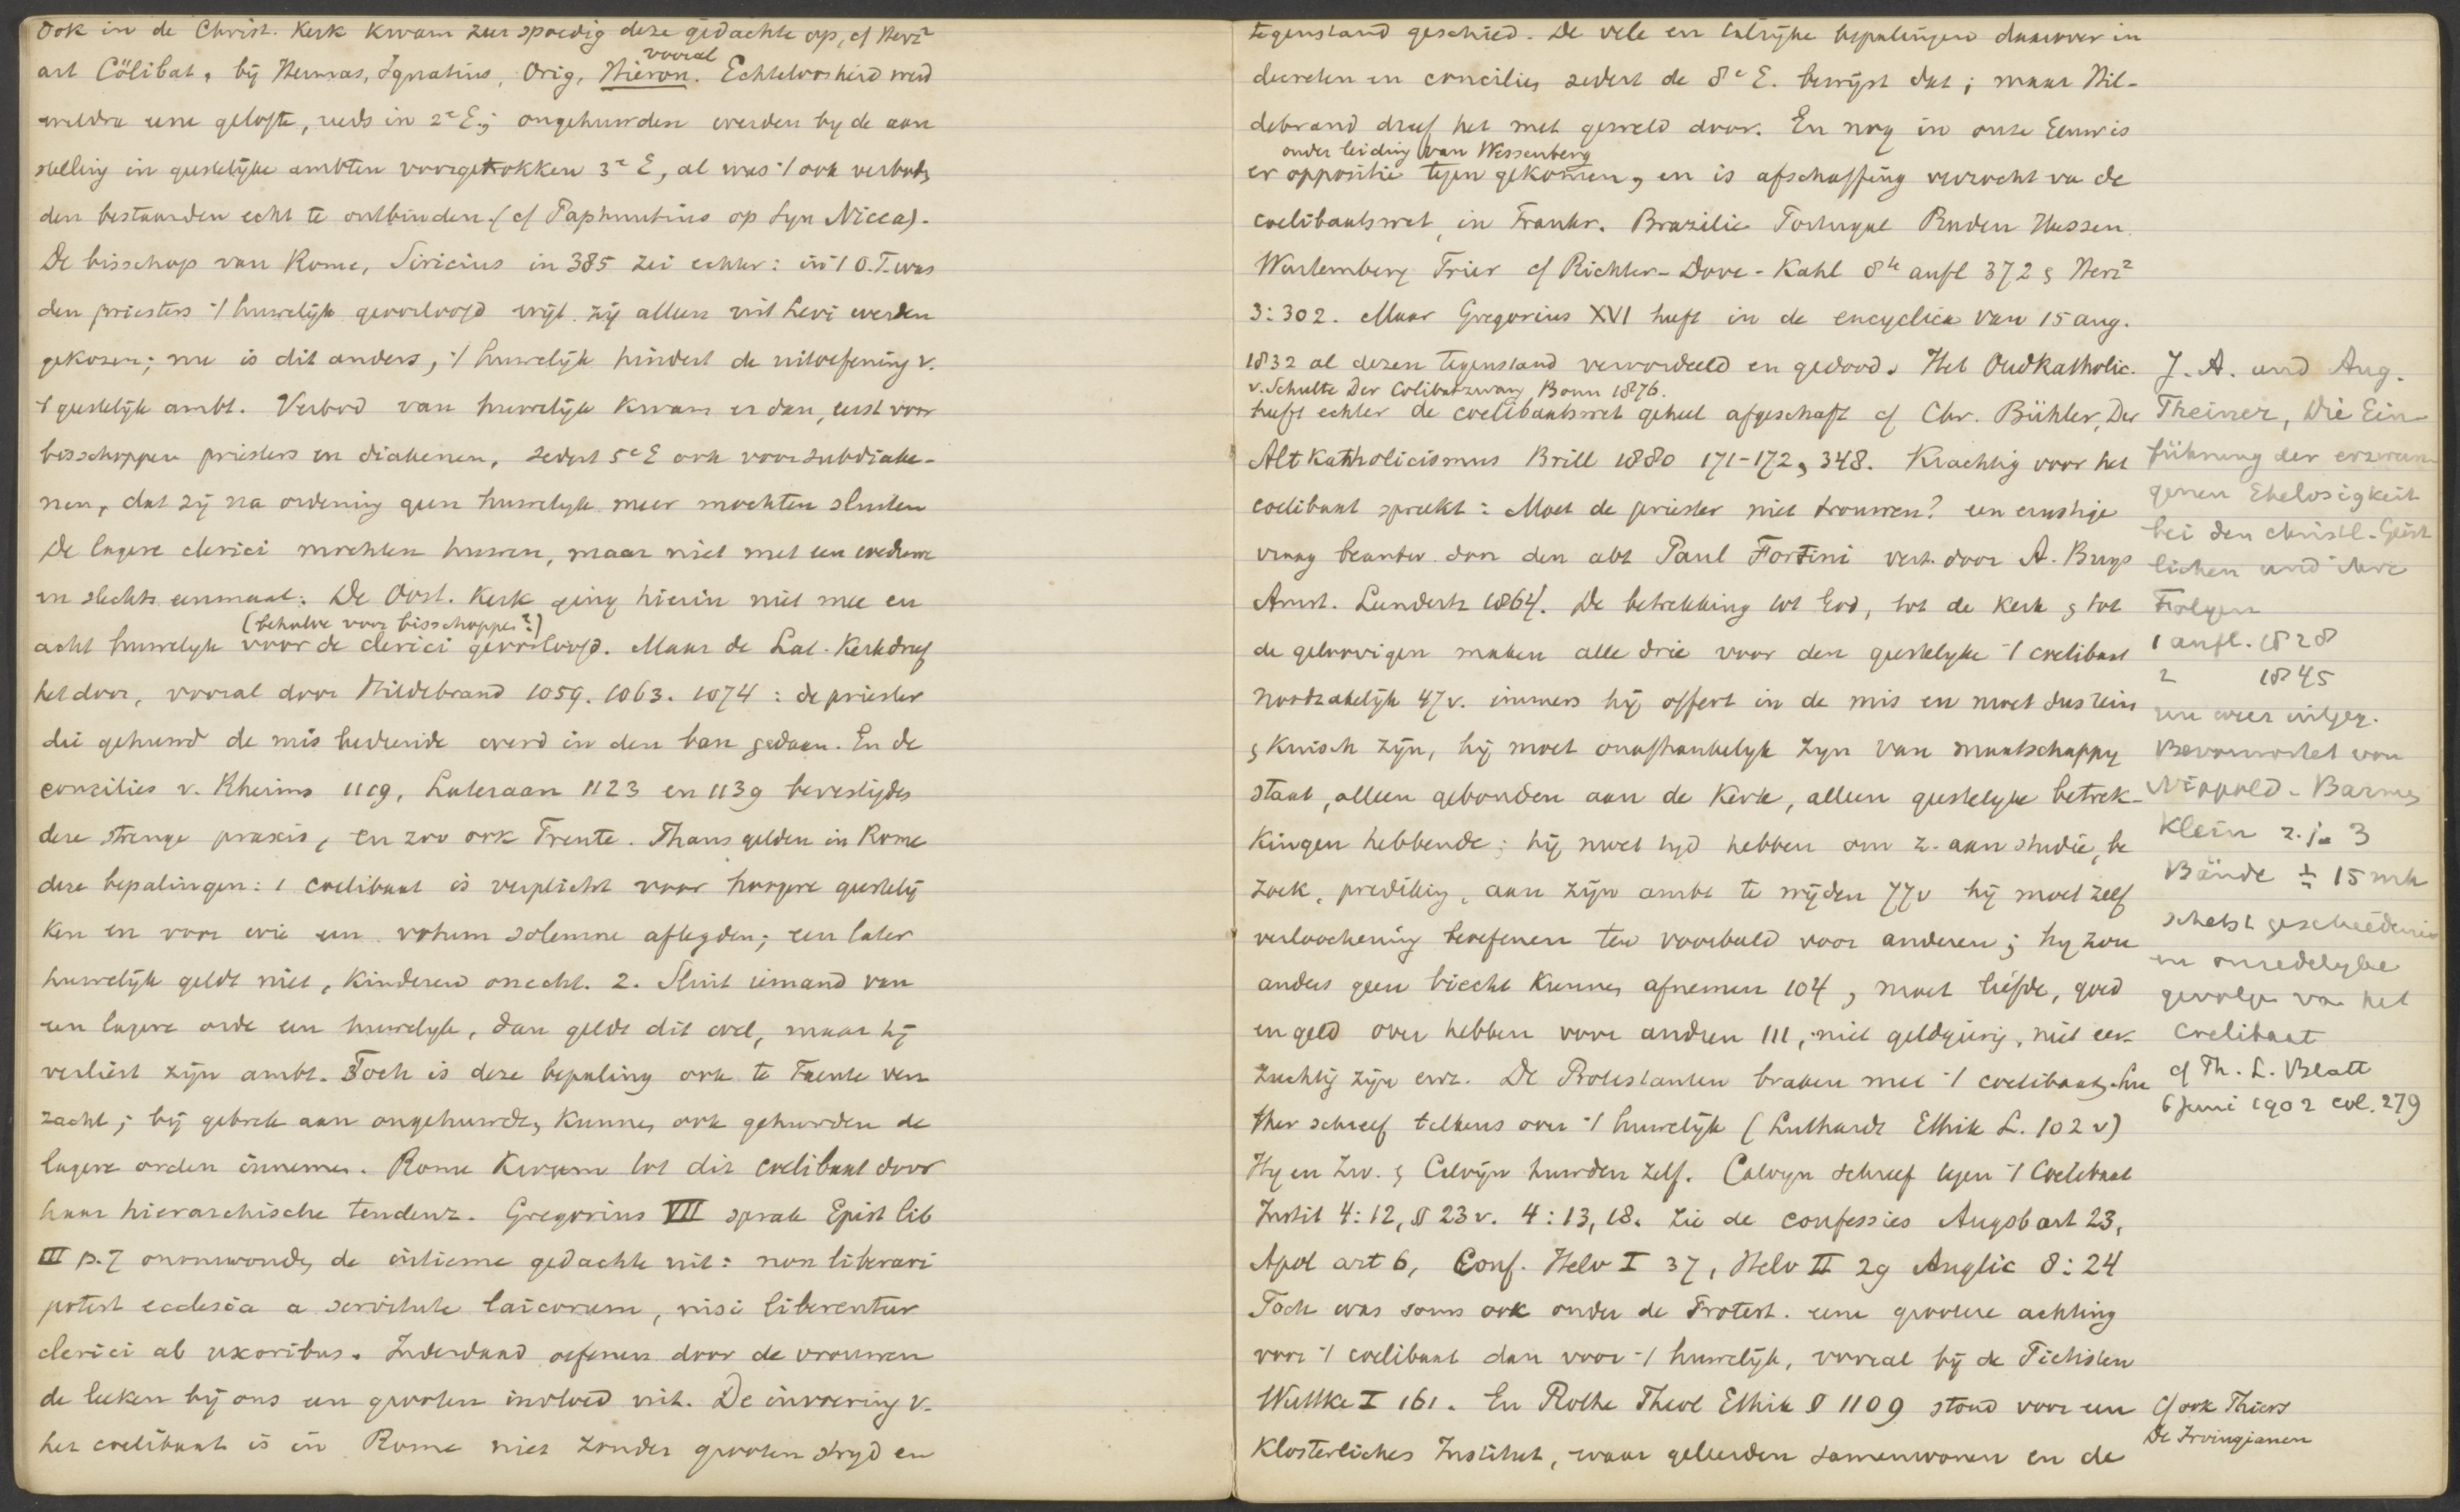 Ook in de Christ. Kerk kwam zeer spoedig deze gedachte op, cf Herz²
vooral
art Cölibat, bij Hermas, Ignatius, Orig, Hieron. Echteloosheid werd
weldra eene gelofte, reeds in 2e E.; ongehuwden werden by de aan
stelling in geestelijke ambten voorgetrokken 3e E, al was 't ook verboden
den bestaanden echt te ontbinden. (cf Paphnutius op Syn Nicea).
De bisschop van Rome, Siricius in 385 zei echter: in 't O.T. was
den priesters 't huwelijk geoorloofd wijl zij alleen uit Levi werden
gekozen; nu is dit anders, 't huwelijk hindert de uitoefening v.
't geestelijk ambt. Verbod van huwelijk kwam er dan, eerst voor
bisschoppen priesters en diakenen, sedert 5e E ook voor subdiake-
nen, dat zij na ordening geen huwelyk meer mochten sluiten
De lagere clerici mochten huwen, maar niet met een weduwe
en slechts eenmaal. De Oost. Kerk ging hierin niet mee en
(behalve voor bisschoppen?)
acht huwelyk voor de clerici geoorloofd. Maar de Lat. Kerk dreef
het door, vooral door Hildebrand 1059. 1063. 1074: de priester
die gehuwd de mis bediende werd in den ban gedaan. En de
concilies v. Rheims 1119, Lateraan 1123 en 1139 bevestigden
deze strenge praxis, en zoo ook Trente. Thans gelden in Rome
deze bepalingen: 1 coelibaat is verplicht voor hoogere geestelij
ken en voor wie een votum solemne aflegden; een later
huwelijk geldt niet, kinderen onecht. 2. Sluit iemand van
een lagere orde een huwelyk, dan geldt dit wel, maar hij
verliest zijn ambt. Toch is deze bepaling ook te Trente ver
zacht; bij gebrek aan ongehuwden kunnen ook gehuwden de
lagere orden innemen. Rome kwam tot dit coelibaat door
haar hierarchische tendenz. Gregorius VII sprak Epist lib
III p. 7 onomwonden de intieme gedachte uit: non liberari
potest ecclesia a servitute laicorum, nisi liberentur
clerici ab uxoribus. Inderdaad oefenen door de vrouwen
de leeken bij ons een grooten invloed uit. De invoering v.
het coelibaat is in Rome niet zonder grooten stryd en
tegenstand geschied. De vele en talrijke bepalingen daarover in
decreten en concilies sedert de 8e E. bewijst dat; maar Hil-
debrand dreef het met geweld door. En nog in onze Eeuw is
onder leiding van Wessenberg
er oppositie tegen gekomen, en is afschaffing verzocht va de
coelibaatswet, in Frankr. Brazilie Portugal Baden Hessen
Wurtemberg Trier cf Richter-Dove-Kahl 8te aufl 372 & Herz²
3:302. Maar Gregorius XVI heeft in de encyclica van 15 aug.
1832 al dezen tegenstand veroordeeld en gedood. Het Oudkatholic.
v. Schulte Der Cölibatzwang Bonn 1876.
heeft echter de coelibaatswet geheel afgeschaft cf Chr. Bühler, Der
Altkatholicismus Brill 1880 171-172, 348. Krachtig voor het
coelibaat spreekt: Moet de priester niet trouwen? een ernstige
vraag beantw. door den abt Paul Fortini vert. door A. Buys
Amst. Lendertz 1864. De betrekking tot God, tot de kerk & tot
de geloovigen maken alle drie voor den geestelyke 't coelibaat
noodzakelijk 47v. immers hij offert in de mis en moet dus rein
& kuisch zijn, hij moet onafhankelyk zyn van maatschappy
staat, alleen gebonden aan de kerk, alleen geestelyke betrek-
kingen hebbende; hij moet tyd hebben om z. aan studie, be
zoek, prediking, aan zijn ambt te wijden 77v hij moet zelf
verloochening beoefenen ten voorbeeld voor anderen; hy zou
anders geen biecht kunnen afnemen 104, moet liefde, goed
en geld over hebben voor andren 111, niet geldgierig, niet eer-
zuchtig zijn enz. De Protestanten braken met 't coelibaat. Lu
ther schreef telkens over 't huwelijk (Luthardt Ethik L. 102 v)
Hy en Zw. & Calvijn huwden zelf. Calvyn schreef tegen 't Coelibaat
Instit 4:12, § 23 v. 4:13, 18. Zie de confessies Augsb art 23,
Apol art 6, Conf. Helv I 37, Helv II 29 Anglic 8:24
Toch was soms ook onder de Protest. eene grootere achting
voor 't coelibaat dan voor 't huwelijk, vooral bij de Pietisten
Wuttke I 161. En Rothe Theol Ethik § 1109 stond voor een
Klosterliches Institut, waar geleerden samenwonen en de
J. A. und Aug.
Theiner, Die Ein-
führung der erzwun-
genen Ehelosigkeit
bei den christl. Geist
lichen und ihre
Folgen
1 aufl. 1828
2 1845
nu weer uitgeg.
Bevorwortet von
Nippold - Barmen
Klein z.j. 3
Bände ± 15 mk
schetst geschiedenis
en onzedelyke
gevolgen va het
coelibaat
cf Th. L. Blatt
6 Juni 1902 col. 279
cf ook Thiers
De Irvingianen